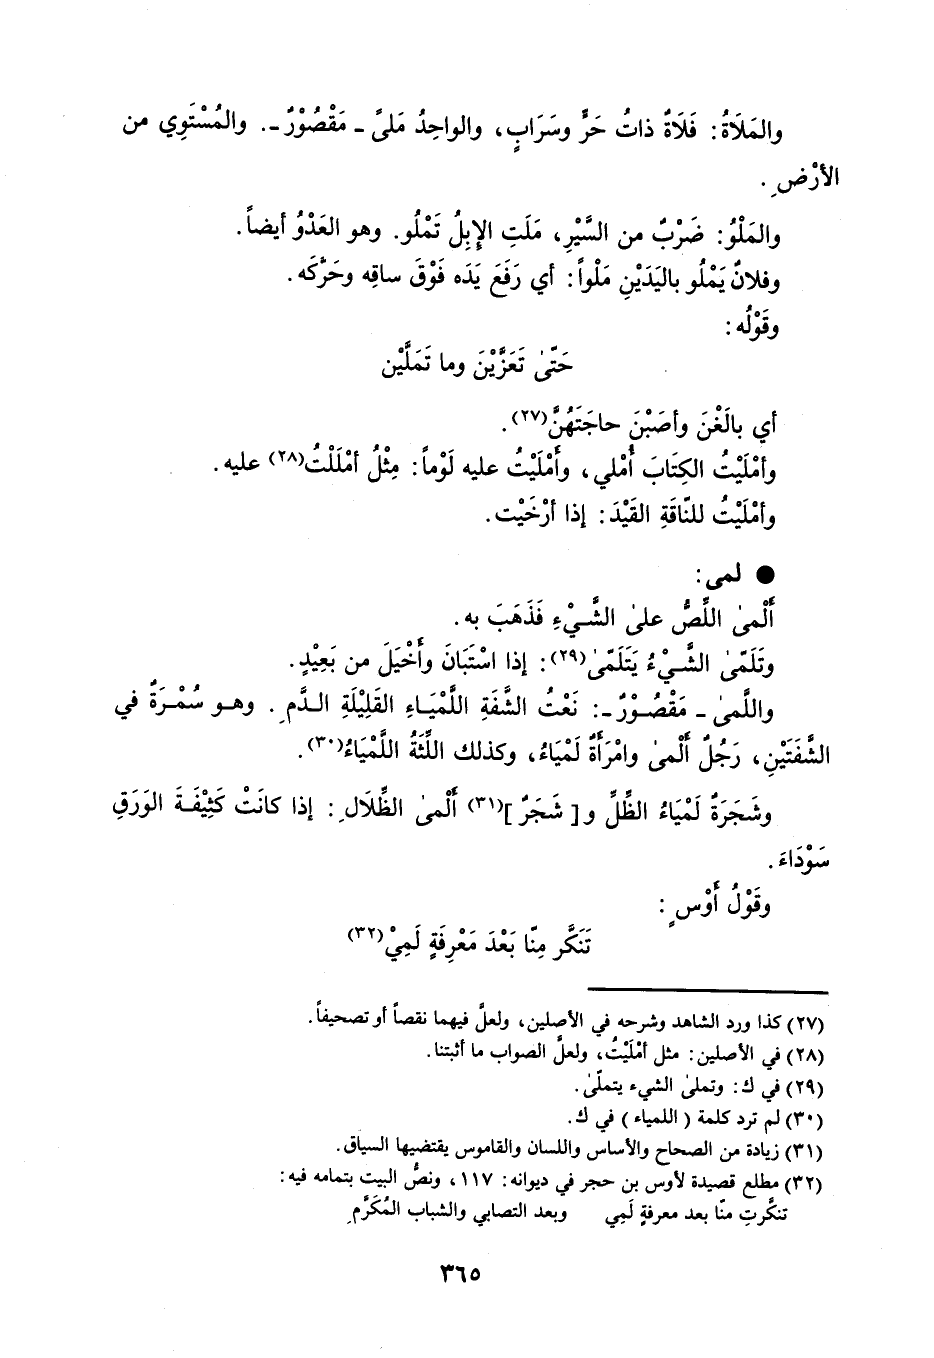 والمَلَاةُ: فَلَاةٌ ذاتُ حَرٍّ وسَرَابٍ، والواحِدُ مَلىً ـ مَقْصُوْرٌ ـ. والمُسْتَوِي من
الأرْضِ.
والمَلْوُ: ضَرْبٌ من السَّيْرِ، مَلَتِ الإِبِلُ تَمْلُو. وهو العَدْوُ أيضاً.
وفلانٌ يَمْلُو باليَدَيْنِ مَلْواً: أي رَفَعَ يَدَه فَوْقَ ساقِه وحَرَّكَه.
وقَوْلُه:
حَتّىٰ تَعَزَّيْنَ وما تَمَلَّيْن
أي بالَغْنَ وأصَبْنَ حاجَتَهُنَّ(٢٧).
وأمْلَيْتُ الكِتَابَ أُمْلي، وأَمْلَيْتُ عليه لَوْماً: مِثْلُ أمْلَلْتُ(٢٨) عليه.
وأمْلَيْتُ للنّاقَةِ القَيْدَ: إذا أرْخَيْت.
● لمى:
أَلْمىٰ اللِّصُّ علىٰ الشَّيْءِ فَذَهَبَ به.
وتَلَمّىٰ الشَّيْءُ يَتَلَمّىٰ(٢٩): إذا اسْتَبَانَ وأَخْيَلَ من بَعِيْدٍ.
واللَّمىٰ ـ مَقْصُوْرٌ ـ: نَعْتُ الشَّفَةِ اللَّمْيَاءِ القَلِيْلَةِ الدَّمِ. وهو سُمْرَةٌ في
الشَّفَتَيْنِ، رَجُلٌ أَلْمىٰ وامْرَأَةٌ لَمْيَاءُ، وكذلك اللِّثَةُ اللَّمْيَاءُ(٣٠).
وشَجَرَةٌ لَمْيَاءُ الظِّلِّ و[ شَجَرٌ ](٣١) أَلْمىٰ الظِّلَالِ: إذا كانَتْ كَثِيْفَةَ الوَرَقِ
سَوْدَاءَ.
وقَوْلُ أَوْسٍ:
تَنَكَّر مِنّا بَعْدَ مَعْرِفَةٍ لَمِيْ(٣٢)
(٢٧) كذا ورد الشاهد وشرحه في الأصلين، ولعلَّ فيهما نقصاً أو تصحيفاً.
(٢٨) في الأصلين: مثل أمْلَيْتُ، ولعلَّ الصواب ما أثبتنا.
(٢٩) في ك: وتملىٰ الشيء يتملّىٰ.
(٣٠) لم ترد كلمة ( اللمياء ) في ك.
(٣١) زيادة من الصحاح والأساس واللسان والقاموس يقتضيها السياق.
(٣٢) مطلع قصيدة لأوس بن حجر في ديوانه: ١١٧، ونصُّ البيت بتمامه فيه:
تنكَّرتِ منّا بعد معرفةٍ لَمِي وبعد التصابي والشباب المُكَرَّمِ
٣٦٥